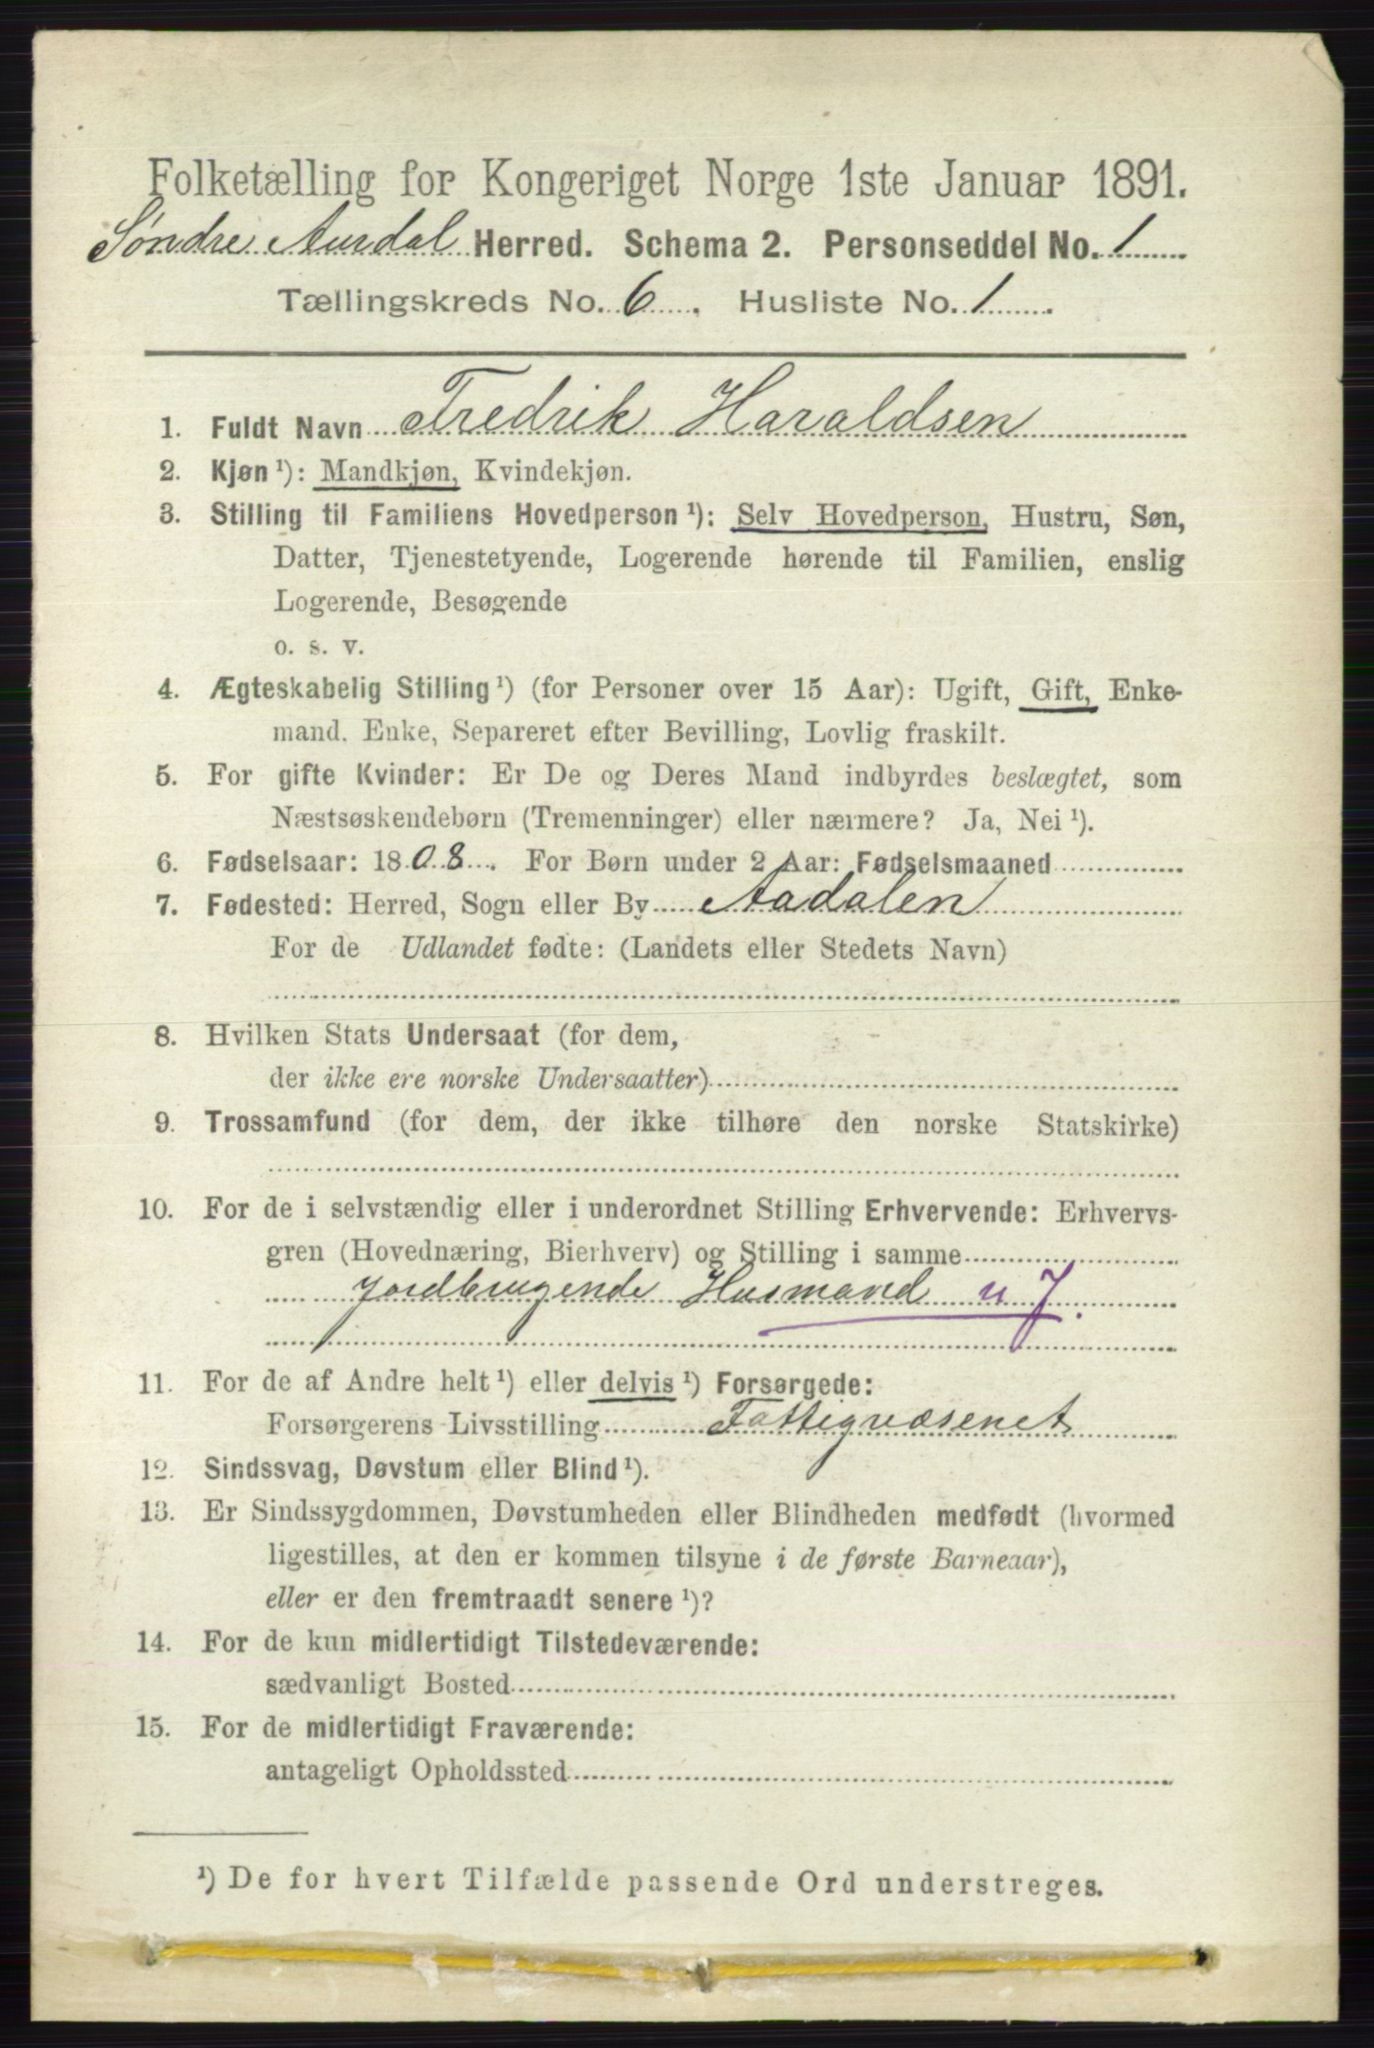 Folketælling for Kongeriget Norge 1ste Januar 1891.
Søndre Aurdal Herred. Schema 2. Personseddel No. 1
Tællingskreds No. 6. Husliste No. 1
1. Fuldt Navn Fredrik Haraldsen
2. Kjøn ¹): Mandkjøn, Kvindekjøn.
3. Stilling til Familiens Hovedperson ¹): Selv Hovedperson, Hustru, Søn,
Datter, Tjenestetyende, Logerende hørende til Familien, enslig
Logerende, Besøgende
o. s. v.
4. Ægteskabelig Stilling ¹) (for Personer over 15 Aar): Ugift, Gift, Enke-
mand. Enke, Separeret efter Bevilling, Lovlig fraskilt.
5. For gifte Kvinder: Er De og Deres Mand indbyrdes beslægtet, som
Næstsøskendebørn (Tremenninger) eller nærmere? Ja, Nei ¹).
6. Fødselsaar: 1808. For Børn under 2 Aar: Fødselsmaaned
7. Fødested: Herred, Sogn eller By Aadalen
For de Udlandet fødte: (Landets eller Stedets Navn)
8. Hvilken Stats Undersaat (for dem,
der ikke ere norske Undersaatter)
9. Trossamfund (for dem, der ikke tilhøre den norske Statskirke)
10. For de i selvstændig eller i underordnet Stilling Erhvervende: Erhvervs-
gren (Hovednæring, Bierhverv) og Stilling i samme
Jordbrugende Husmand u J.
11. For de af Andre helt ¹) eller delvis ¹) Forsørgede:
Forsørgerens Livsstilling Fattigvæsenet
12. Sindssvag, Døvstum eller Blind ¹).
13. Er Sindssygdommen, Døvstumheden eller Blindheden medfødt (hvormed
ligestilles, at den er kommen tilsyne i de første Barneaar),
eller er den fremtraadt senere ¹)?
14. For de kun midlertidigt Tilstedeværende:
sædvanligt Bosted
15. For de midlertidigt Fraværende:
antageligt Opholdssted
¹) De for hvert Tilfælde passende Ord understreges.